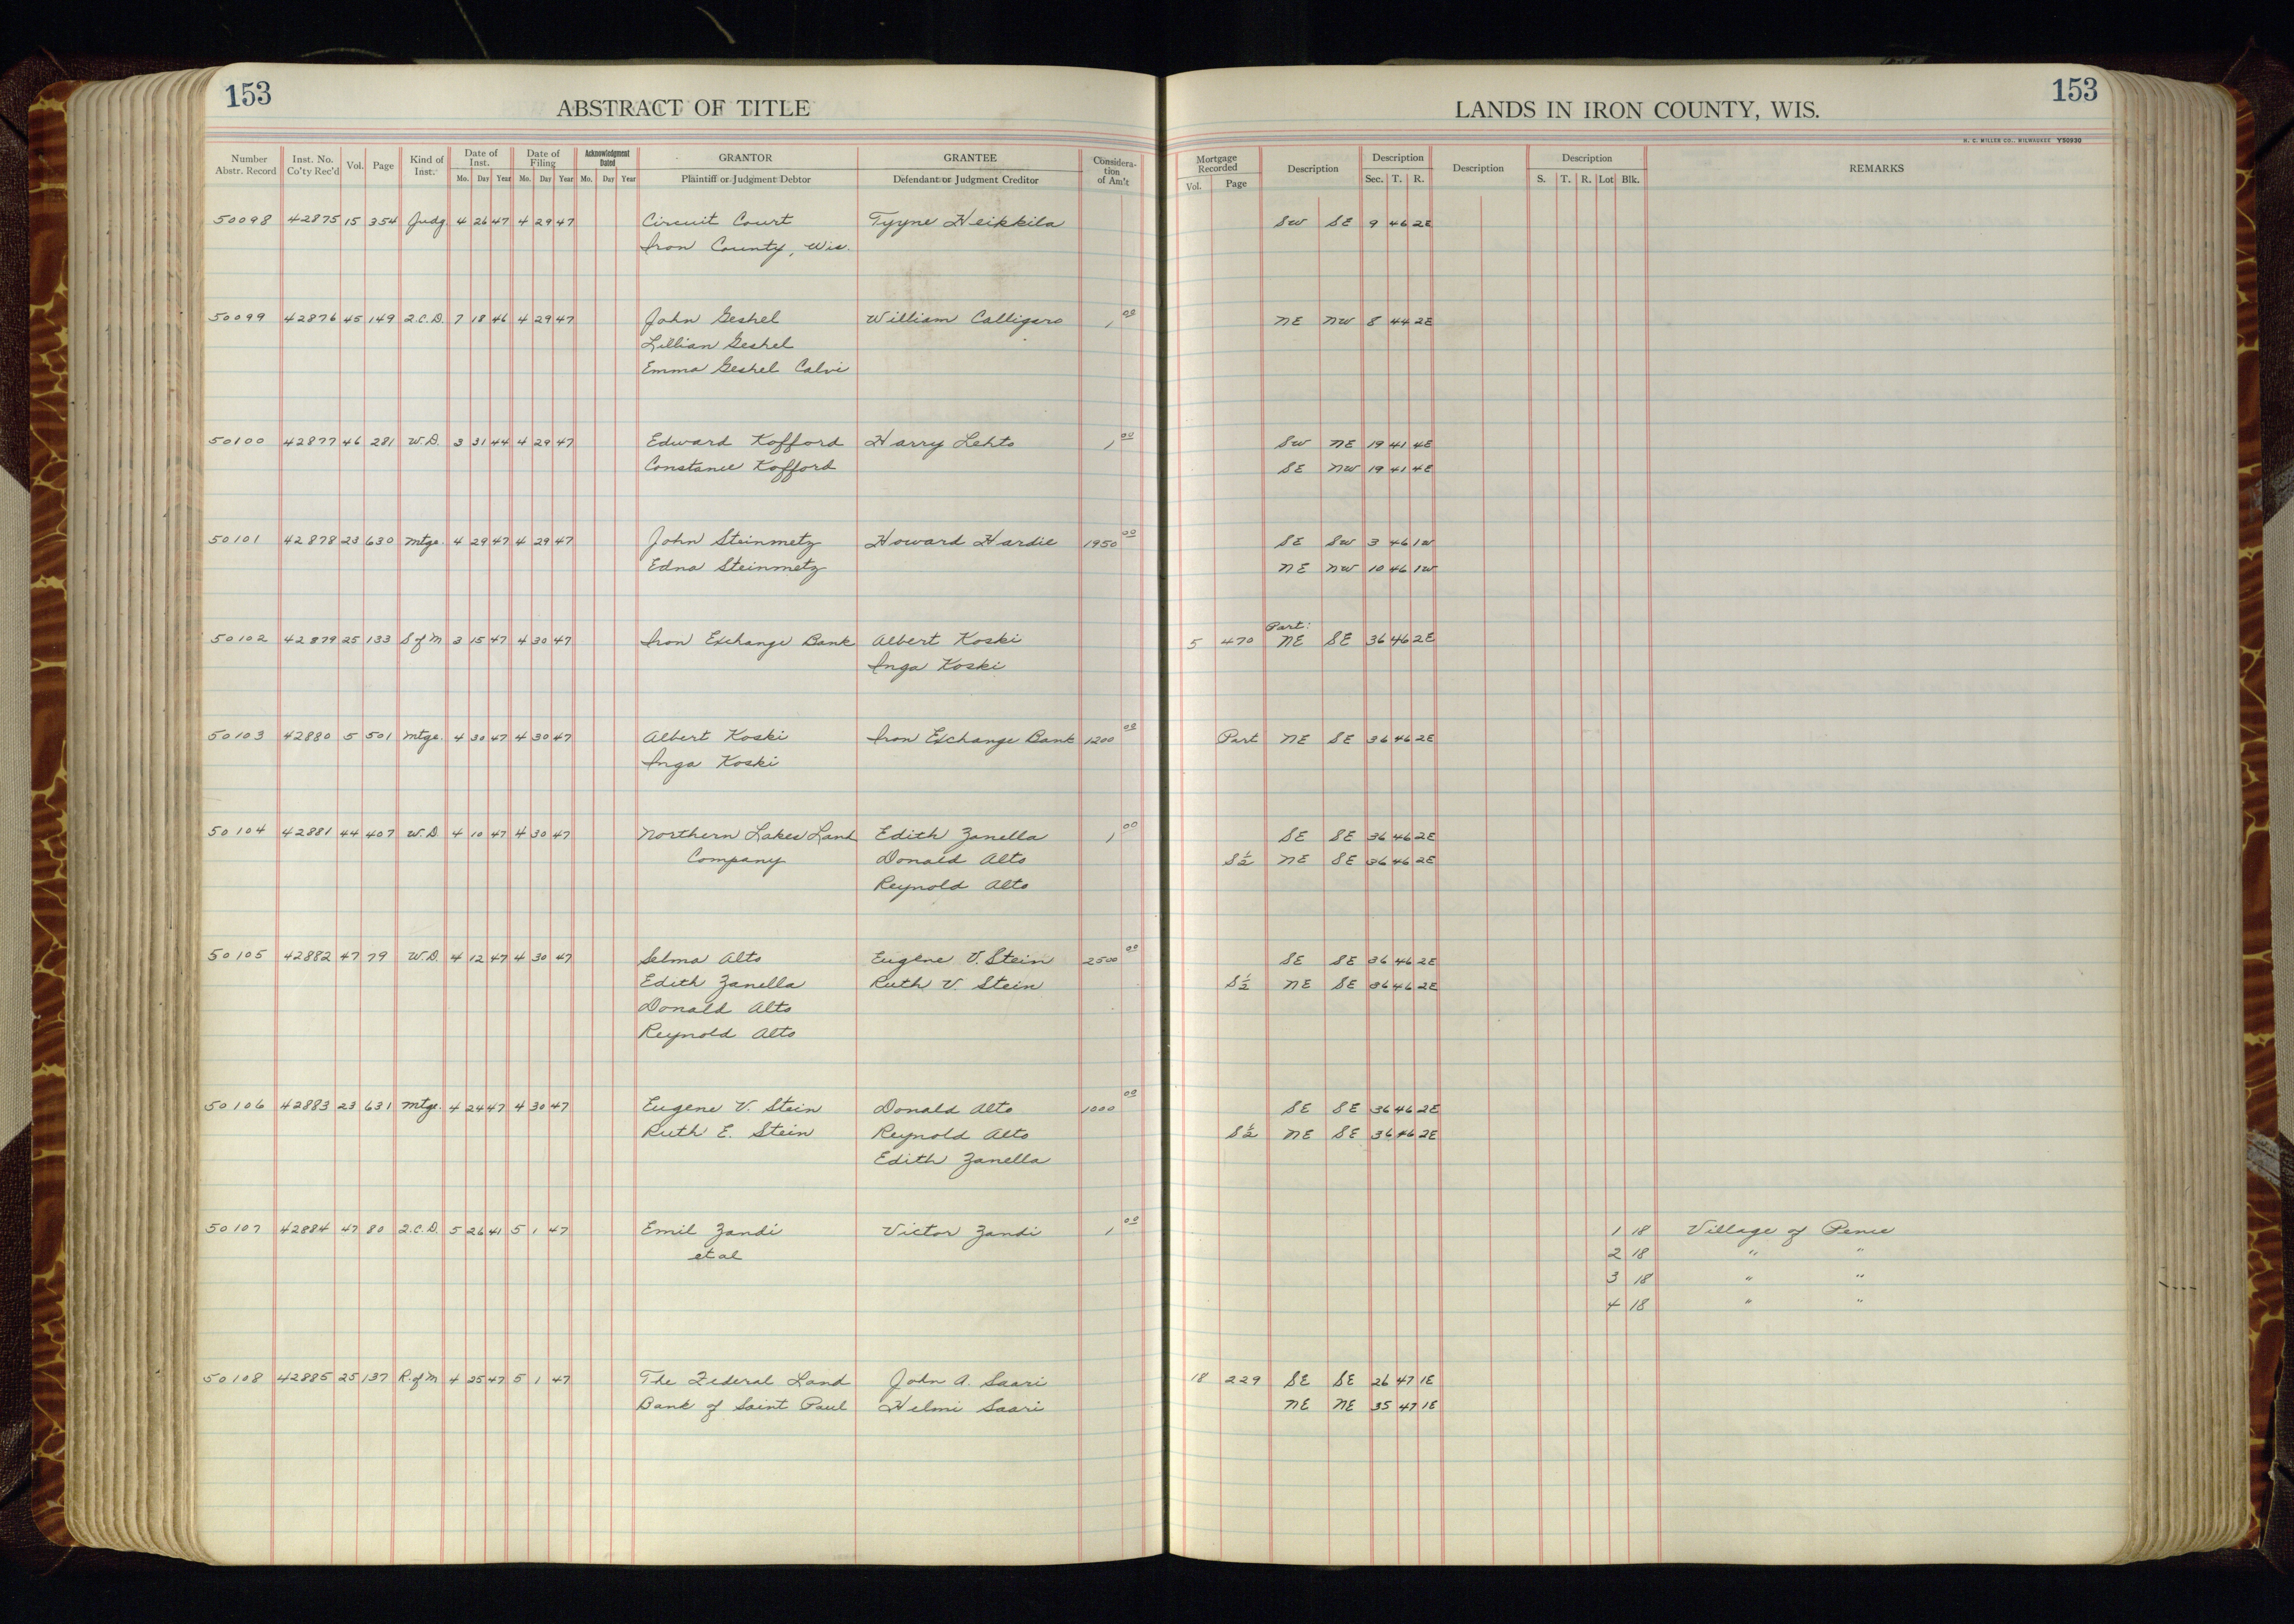 153
ABSTRACT OF TITLE
LANDS IN IRON COUNTY, WIS.
153
H. C. MILLER CO., MILWAUKEE Y50930
Number Abstr. Record Inst. No. Co'ty Rec'd Vol. Page Kind of Inst. Date of Inst. Mo. Day Year Date of Filing Mo. Day Year Acknowledgment Dated Mo. Day Year GRANTOR Plaintiff or Judgment Debtor GRANTEE Defendant or Judgment Creditor Considera-tion of Am't Mortgage Recorded Vol. Page Description Description Sec. T. R. Description Description S. T. R. Lot Blk. REMARKS
50098 42875 15 354 Judg. 4 26 47 4 29 47 Circuit Court Tyyne Heikkila SW SE 9 46 2E
Iron County, Wis.
50099 42876 45 149 Q.C.D. 7 18 46 4 29 47 John Geshel William Calligaro 1 00 NE NW 8 44 2E
Lillian Geshel
Emma Geshel Calvi
50100 42877 46 281 W.D. 3 31 44 4 29 47 Edward Kofford Harry Lehto 1 00 SW NE 19 41 4E
Constance Kofford SE NW 19 41 4E
50101 42878 23 630 Mtge. 4 29 47 4 29 47 John Steinmetz Howard Hardie 1950 00 SE SW 3 46 1W
Edna Steinmetz NE NW 10 46 1W
Part:
50102 42879 25 133 S of M 3 15 47 4 30 47 Iron Exchange Bank Albert Koski 5 470 NE SE 36 46 2E
Inga Koski
50103 42880 5 501 Mtge. 4 30 47 4 30 47 Albert Koski Iron Exchange Bank 1200 00 Part NE SE 36 46 2E
Inga Koski
50104 42881 44 407 W.D 4 10 47 4 30 47 Northern Lakes Land Edith Zanella 1 00 SE SE 36 46 2E
Company Donald Alto S½ NE SE 36 46 2E
Reynold Alto
50105 42882 47 79 W.D. 4 12 47 4 30 47 Selma Alto Eugene V. Stein 2500 00 SE SE 36 46 2E
Edith Zanella Ruth V Stein S½ NE SE 36 46 2E
Donald Alto
Reynold Alto
50106 42883 23 631 Mtge. 4 24 47 4 30 47 Eugene V. Stein Donald Alto 1000 00 SE SE 36 46 2E
Ruth E. Stein Reynold Alto S½ NE SE 36 46 2E
Edith Zanella
50107 42884 47 80 Q.C.D. 5 26 41 5 1 47 Emil Zandi Victor Zandi 1 00 1 18 Village of Pence
et al 2 18 " "
3 18 " "
4 18 " "
50108 42885 25 137 R. of M 4 25 47 5 1 47 The Federal Land John A. Saari 18 229 SE SE 26 47 1E
Bank of Saint Paul Helmi Saari NE NE 35 47 1E